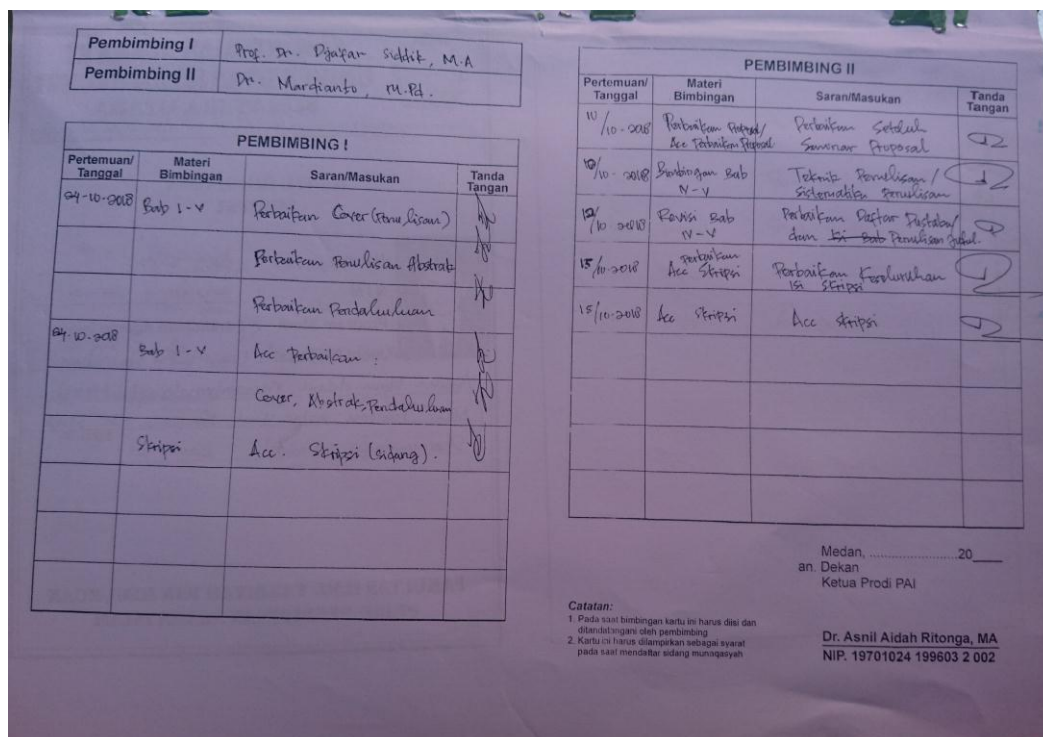 Pembimbing I Prof. Dr. Djafar Siddik, M.A
Pembimbing II Dr. Mardianto, M.Pd.
PEMBIMBING I
Pertemuan/ Tanggal Materi Bimbingan Saran/Masukan Tanda Tangan
24-10-2018 Bab I-V Perbaikan Cover (Penulisan)
Perbaikan Penulisan Abstrak
Perbaikan Pendahuluan
24-10-2018 Bab I-V Acc Perbaikan :
Cover, Abstrak, Pendahuluan
Skripsi Acc. Skripsi (sidang).
PEMBIMBING II
Pertemuan/ Tanggal Materi Bimbingan Saran/Masukan Tanda Tangan
10/10-2018 Perbaikan Proposal/ Perbaikan Setelah
Acc Perbaikan Proposal Seminar Proposal
10/10-2018 Bimbingan Bab Teknik Penulisan /
IV-V Sistematika Penulisan
12/10-2018 Revisi Bab Perbaikan Daftar Pustaka/
IV-V dan Isi Bab Penulisan Judul.
15/10-2018 Perbaikan Perbaikan Keseluruhan
Acc Skripsi Isi Skripsi
15/10-2018 Acc Skripsi Acc Skripsi
Medan, ........................20____
an. Dekan
Ketua Prodi PAI
Catatan:
1. Pada saat bimbingan kartu ini harus diisi dan
ditandatangani oleh pembimbing
2. Kartu ini harus dilampirkan sebagai syarat
pada saat mendaftar sidang munaqasyah
Dr. Asnil Aidah Ritonga, MA
NIP. 19701024 199603 2 002